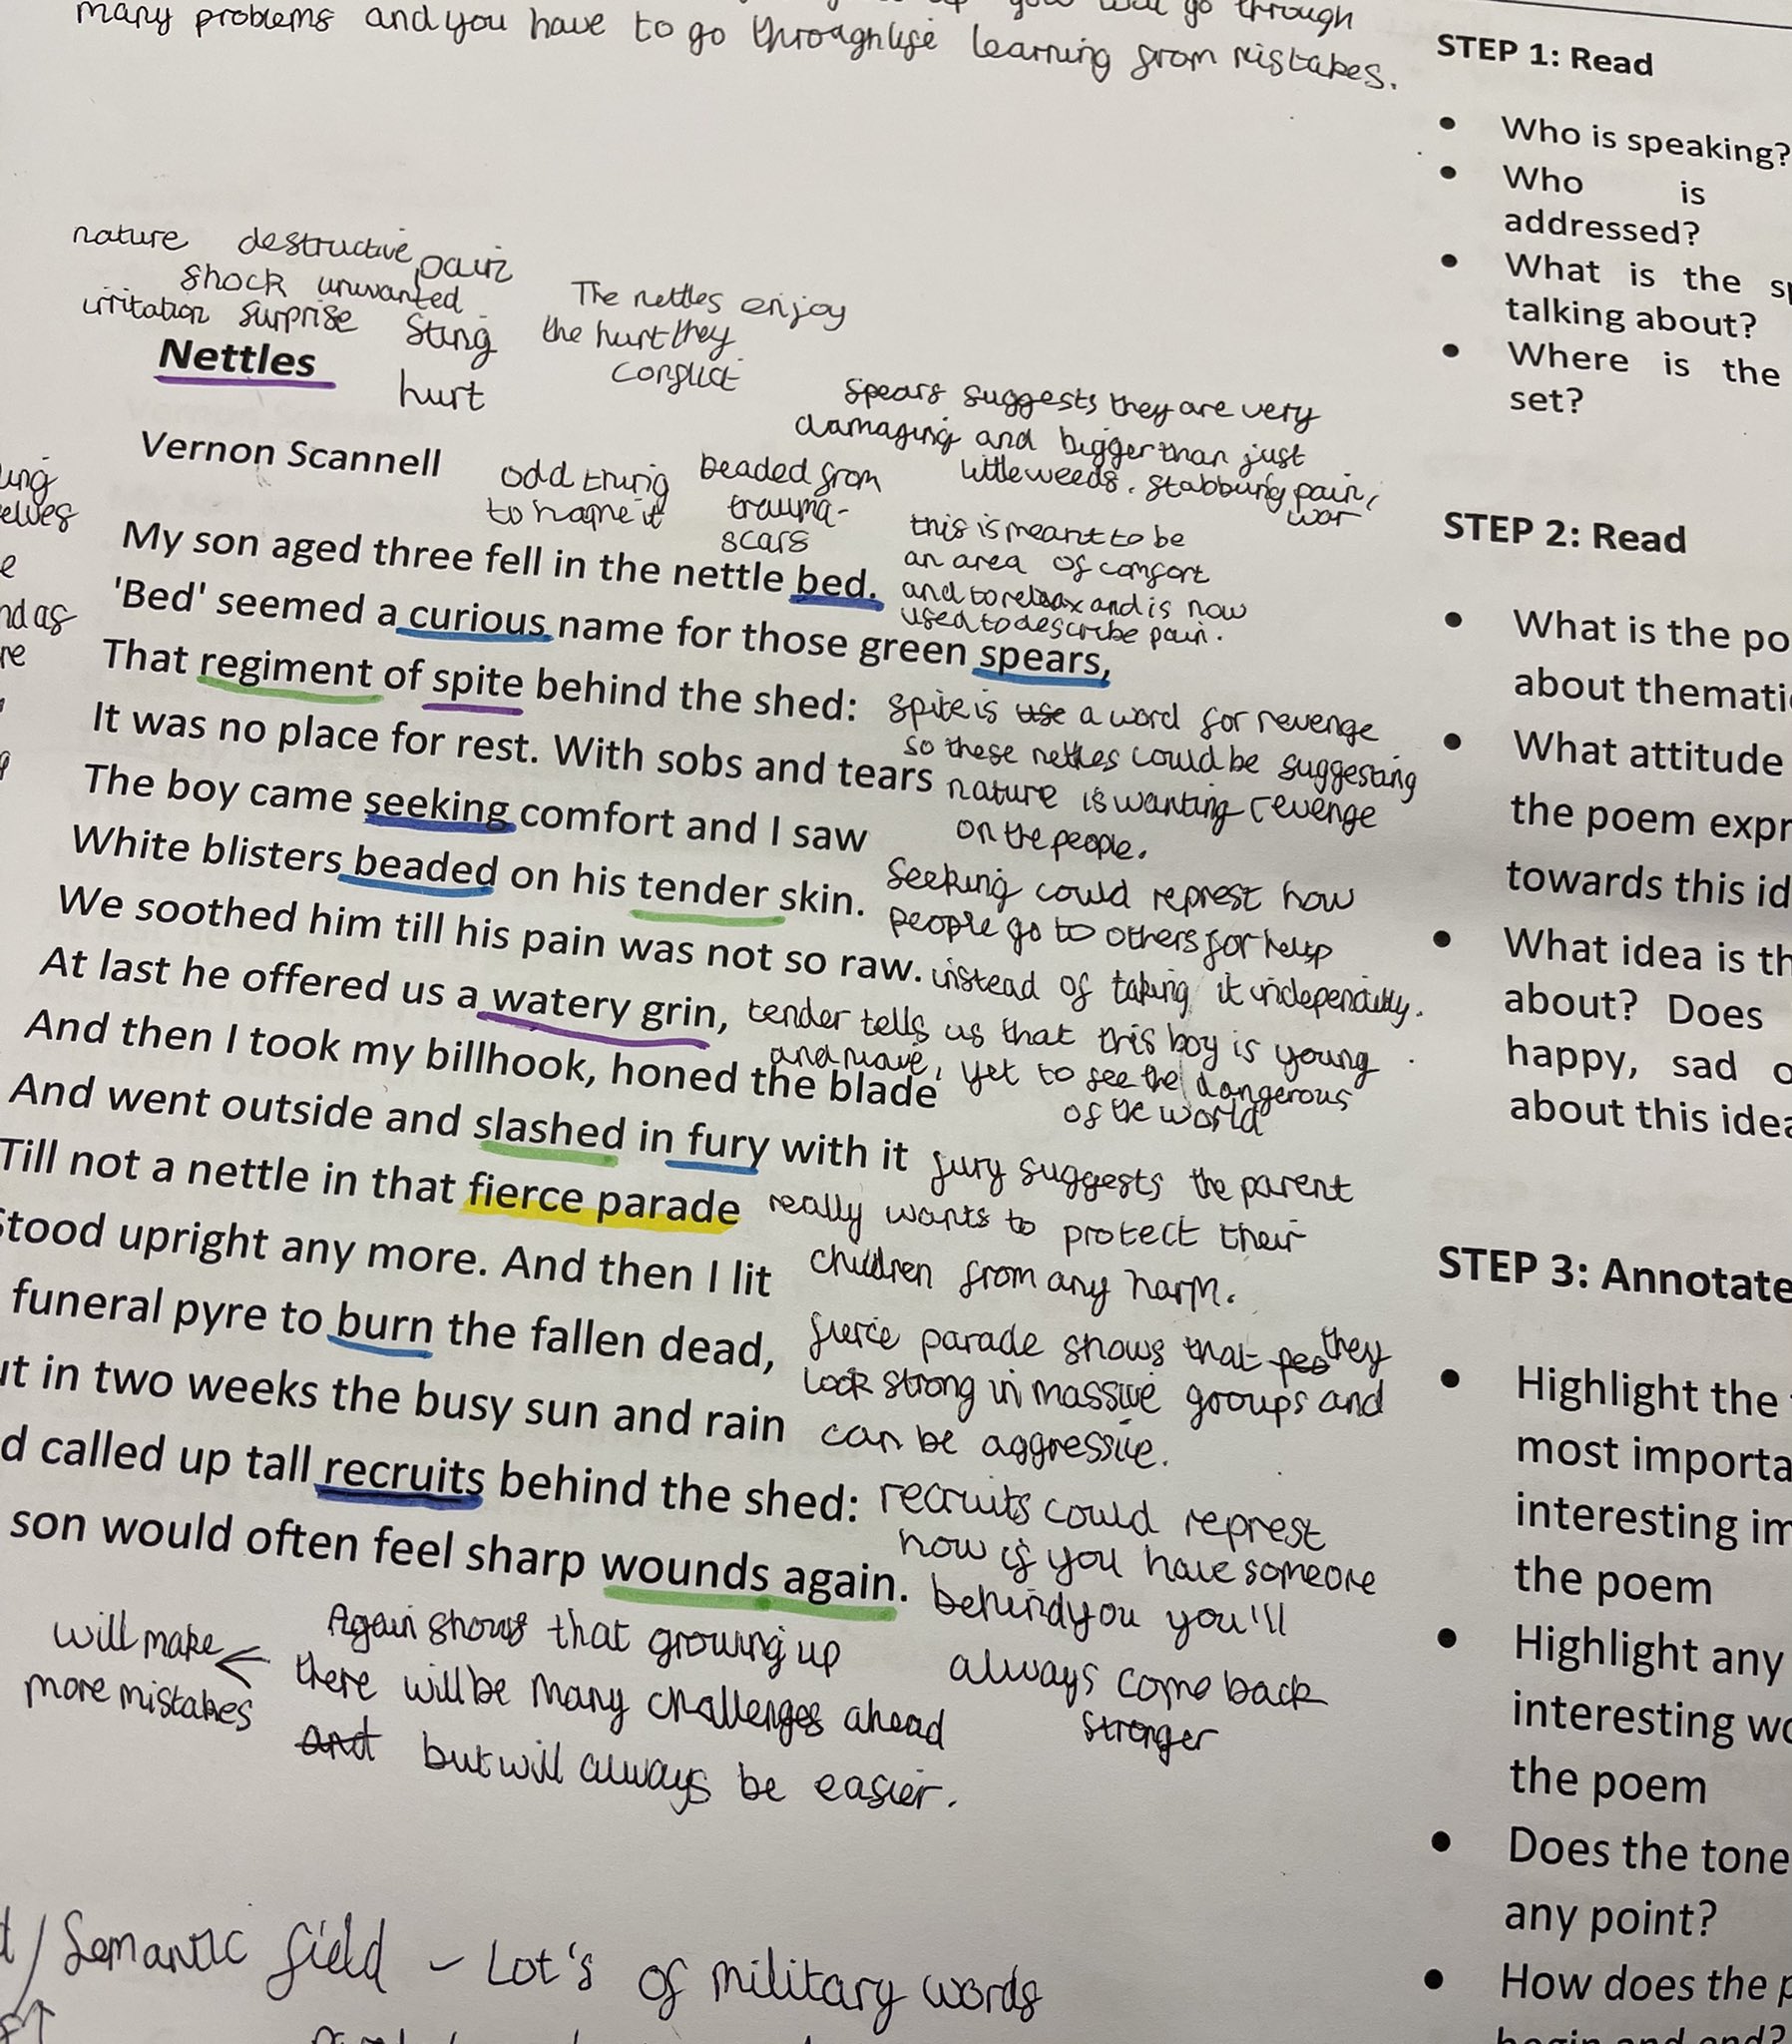 go through
many problems and you have to go through life learning from mistakes.
nature destructive pain
shock unwanted
irritation surprise sting
hurt
The nettles enjoy
the hurt they
conflict
Nettles
Vernon Scannell
odd thing
to name it
beaded from
trauma-
scars
spears suggests they are very
damaging and bigger than just
little weeds. stabbing pain,
war
this is meant to be
an area of comfort
and to relax and is now
used to describe pain.
My son aged three fell in the nettle bed.
'Bed' seemed a curious name for those green spears,
That regiment of spite behind the shed:
It was no place for rest. With sobs and tears
The boy came seeking comfort and I saw
White blisters beaded on his tender skin.
We soothed him till his pain was not so raw.
At last he offered us a watery grin,
And then I took my billhook, honed the blade
And went outside and slashed in fury with it
Till not a nettle in that fierce parade
Stood upright any more. And then I lit
funeral pyre to burn the fallen dead,
ut in two weeks the busy sun and rain
d called up tall recruits behind the shed:
son would often feel sharp wounds again.
spite is use a word for revenge
so these nettles could be suggesting
nature is wanting revenge
on the people.
Seeking could represt how
people go to others for help
instead of taking it independently.
tender tells us that this boy is young
and naive, yet to see the dangerous
of the world
fury suggests the parent
really wants to protect their
children from any harm.
fierce parade shows that peo they
look strong in massive groups and
can be aggressive.
recruits could represt
how if you have someone
behind you you'll
always come back
stronger
Again shows that growing up
there will be many challenges ahead
and but will always be easier.
will make
more mistakes
ung
elves
e
nd as
re
/ Semantic field - Lot's of military words
STEP 1: Read
• Who is speaking?
• Who is
addressed?
• What is the sp
talking about?
• Where is the
set?
STEP 2: Read
• What is the po
about themati
• What attitude
the poem expr
towards this id
• What idea is th
about? Does
happy, sad o
about this idea
STEP 3: Annotate
• Highlight the
most importa
interesting im
the poem
• Highlight any
interesting wo
the poem
• Does the tone
any point?
• How does the p
begin and end?